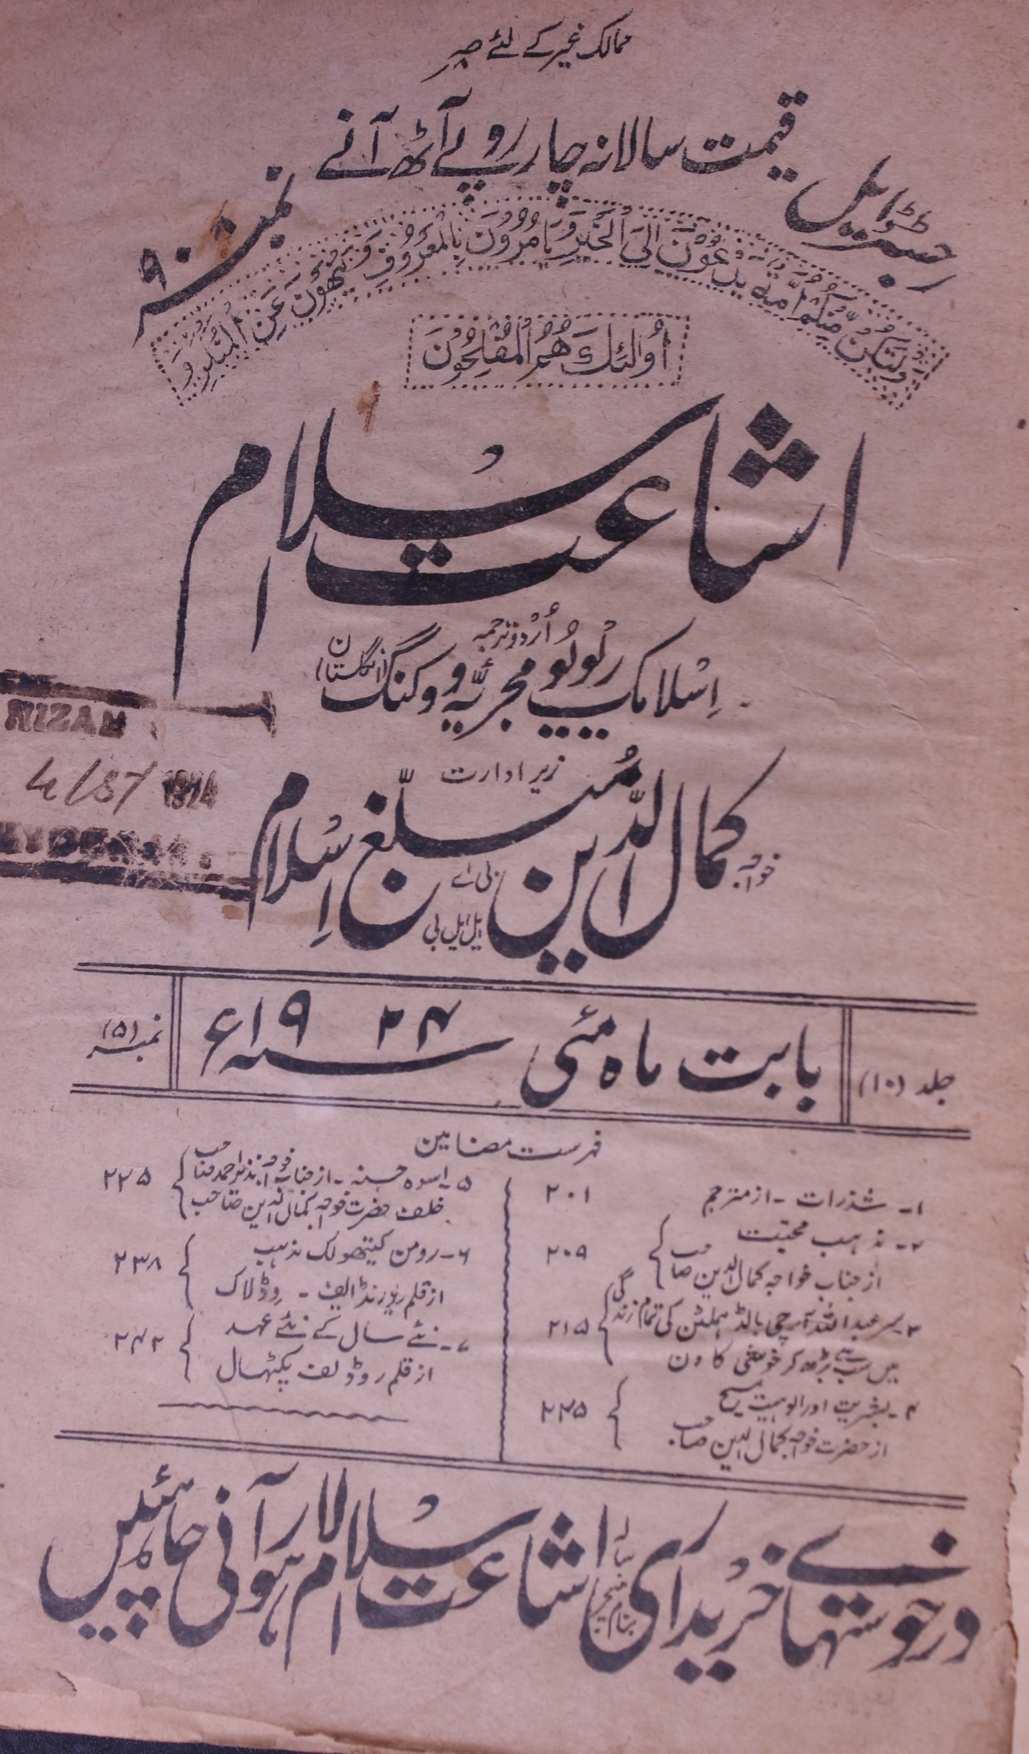 ممالک غیر کے لئے صہ
قیمت سالانہ چار روپے آٹھ آنے
رجسٹرڈ ایل نمبر ۹۰۰
ولتکن منکم امۃ یدعون الی الخیر و یامرون بالمعروف و ینھون عن المنکر و
اُولٰئک ھُمُ المُفلِحُونَ
اشاعت اسلام
اُردو ترجمہ
اسلامک ریویو مجریہ ووکنگ (انگلستان)
زیر ادارت
خواجہ کمال الدین بی اے ایل ایل بی مبلغ اسلام
NIZAM
4/57 1324
جلد (۱۰) بابت ماہ مئی سنہ ۱۹۲۴ء نمبر (۵)
فہرست مضامین
۱- شذرات - از مترجم ۲۰۱
۲- مذہب محبت
از جناب خواجہ کمال الدین صاحب ۲۰۹
۳- سر عبداللہ آرچی بالڈ ہملٹن کی تمام زندگی
میں سب سے بڑھ کر خوشی کا دن ۲۱۵
۴- بشریت اور الوہیت مسیح
از حضرت خواجہ کمال الدین صاحب ۲۲۵
۵- اسوہ حسنہ - از جناب خواجہ نذیر احمد صاحب
خلف حضرت خواجہ کمال الدین صاحب ۲۲۵
۶- رومن کیتھولک مذہب
از قلم ریورنڈ الیف - وڈلاک ۲۳۸
۷- نئے سال کے نئے عہد
از قلم روڈولف پکتھال ۲۴۲
درخوستہائے خریداری بنام منیجر رسالہ اشاعت اسلام لاہور آنی چاہئیں